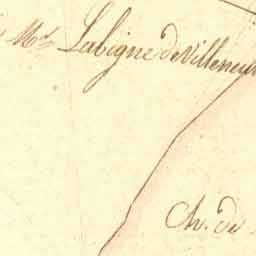 Mr Labigne de Villeneuv
Ch. de